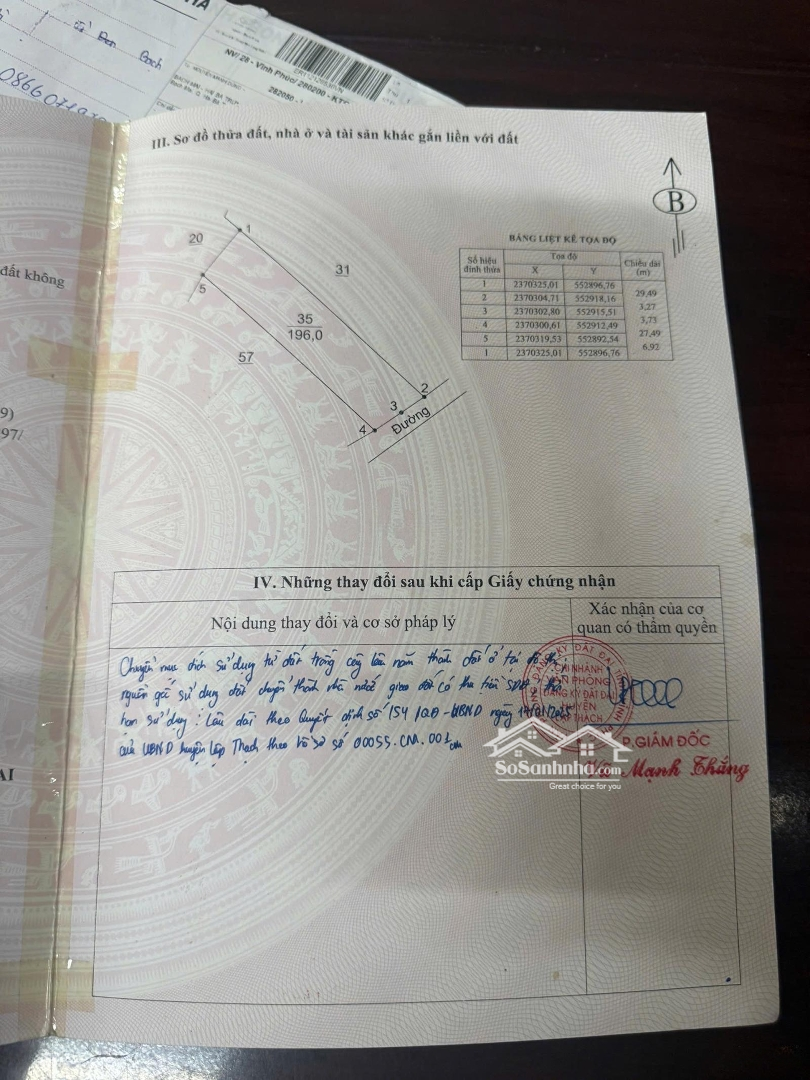 Bạch
0866071
NV/ 28 - Vĩnh Phúc/ 280200 - KT
III. Sơ đồ thửa đất, nhà ở và tài sản khác gắn liền với đất
B
đất không
9)
97/
AI
20
1
31
5
35
196,0
57
2
3
4
Đường
BẢNG LIỆT KÊ TỌA ĐỘ
Số hiệu đỉnh thửa Tọa độ Chiều dài (m)
X Y
1 2370325,01 552896,76
29,49
2 2370304,71 552918,16
3,27
3 2370302,80 552915,51
3,73
4 2370300,61 552912,49
27,49
5 2370319,53 552892,54
6,92
1 2370325,01 552896,76
IV. Những thay đổi sau khi cấp Giấy chứng nhận
Nội dung thay đổi và cơ sở pháp lý
Xác nhận của cơ quan có thẩm quyền
Chuyển mục đích sử dụng từ đất trồng cây lâu năm thành đất ở tại đô thị
nguồn gốc sử dụng đất chuyển thành nhà nước giao đất có thu tiền SDĐ, thời
hạn sử dụng: Lâu dài theo Quyết định số 154 /QĐ-UBND ngày 14/01/2025
của UBND huyện Lập Thạch theo hồ sơ số 00055.CM.001
CHI NHÁNH
VĂN PHÒNG
ĐĂNG KÝ ĐẤT ĐAI
P.GIÁM ĐỐC
Mạnh Thắng
SoSanhnha.com
Great choice for you